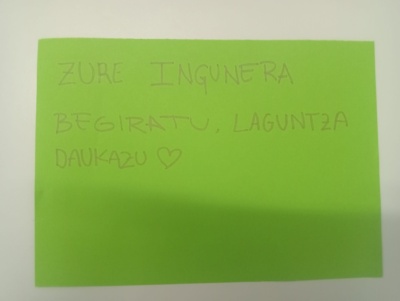 ZURE INGUNERA
BEGIRATU, LAGUNTZA
DAUKAZU ♡